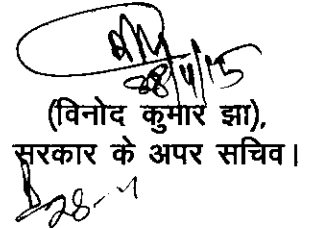 28/4/15
(विनोद कुमार झा),
सरकार के अपर सचिव।
28-4